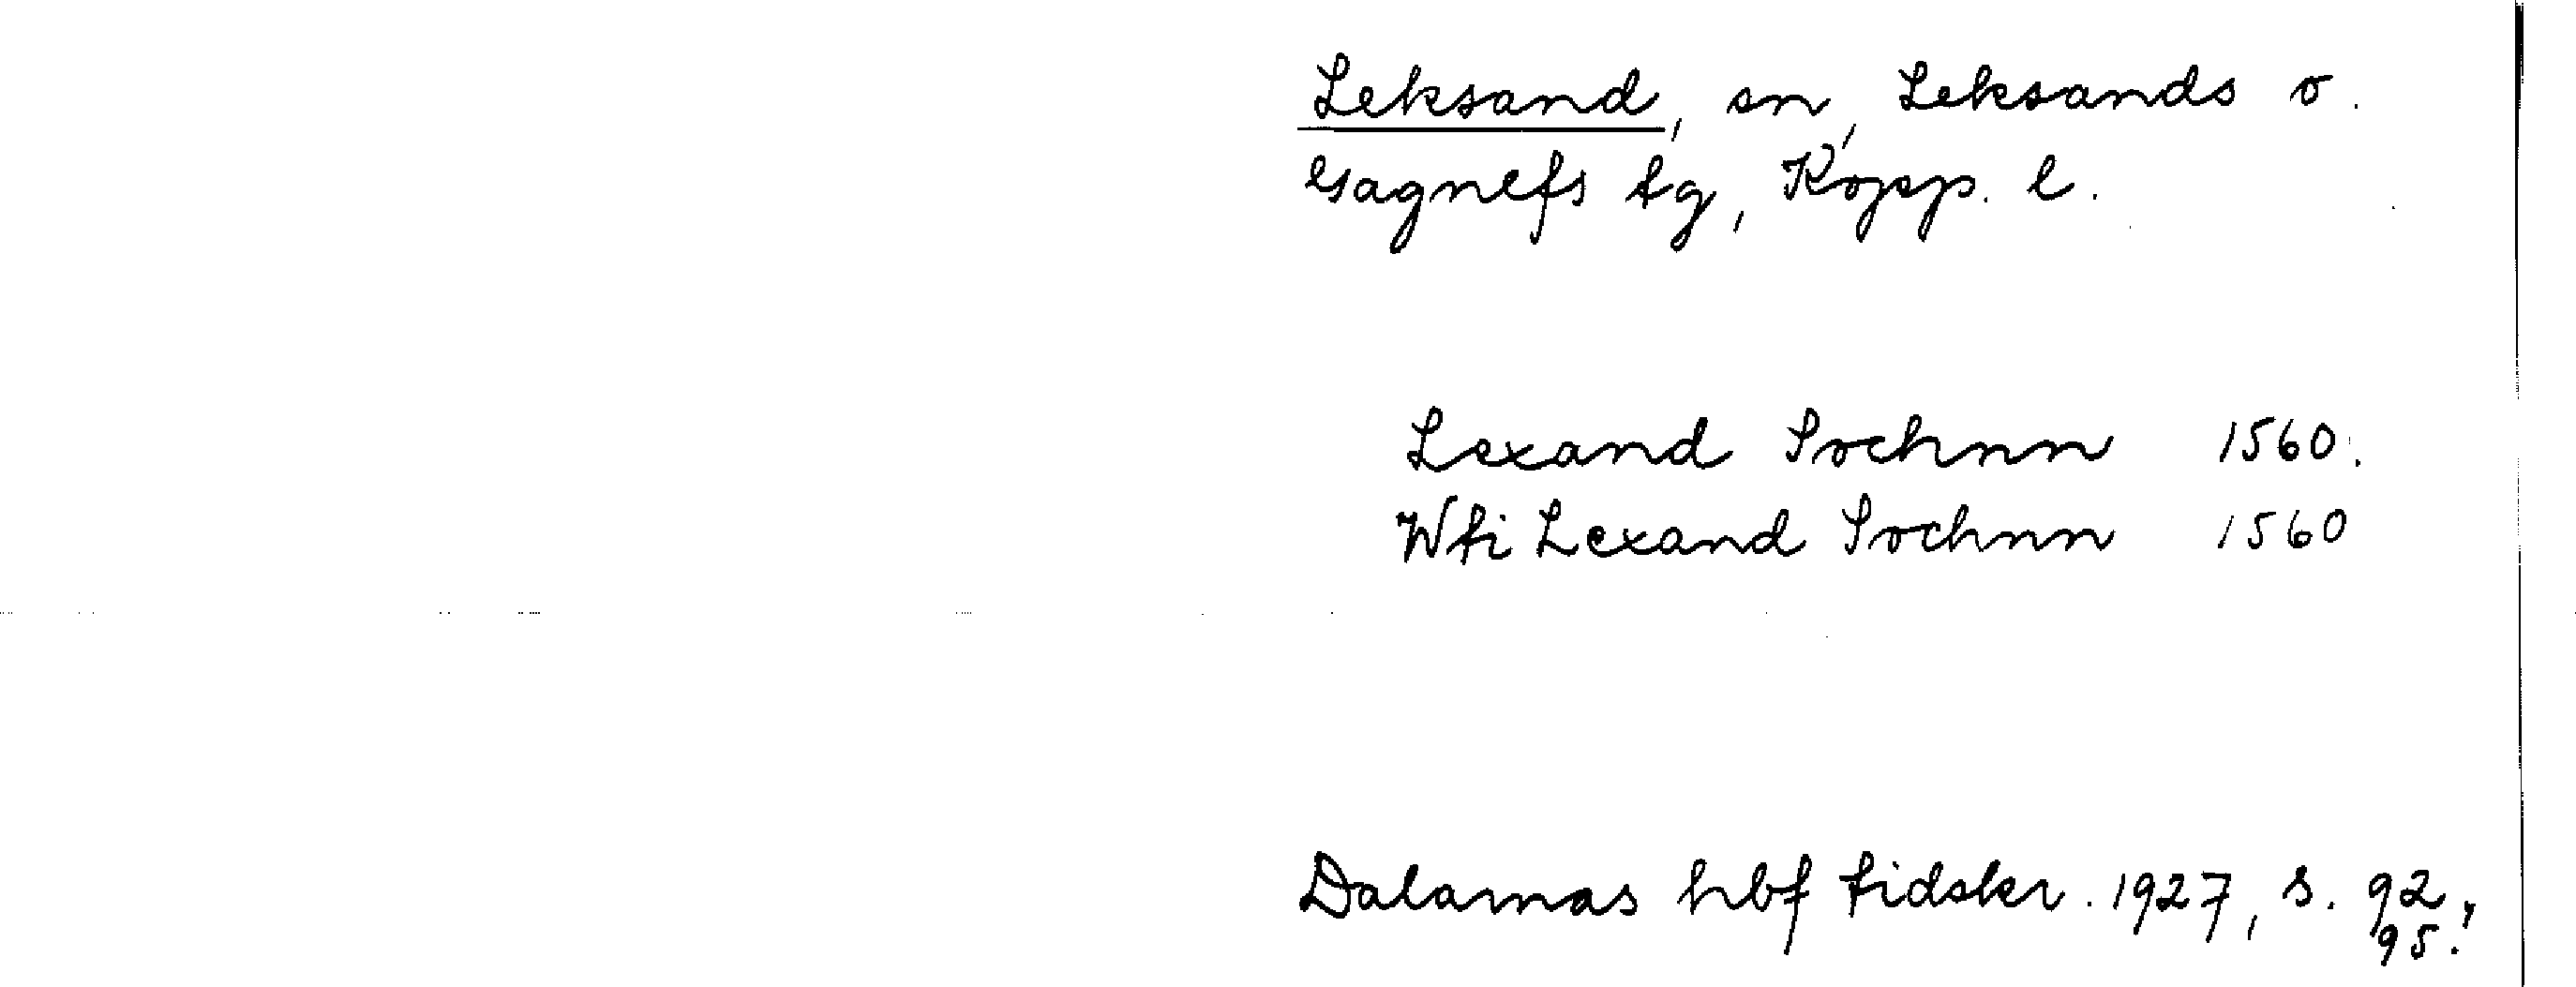 Leksand, sn, Leksands o.
Gagnefs tg, Kopp. l.
Lexand Sochnn 1560.
Wti Lexand Sochnn 1560
Dalarnas hbf tidskr. 1927, s. 92,
95.